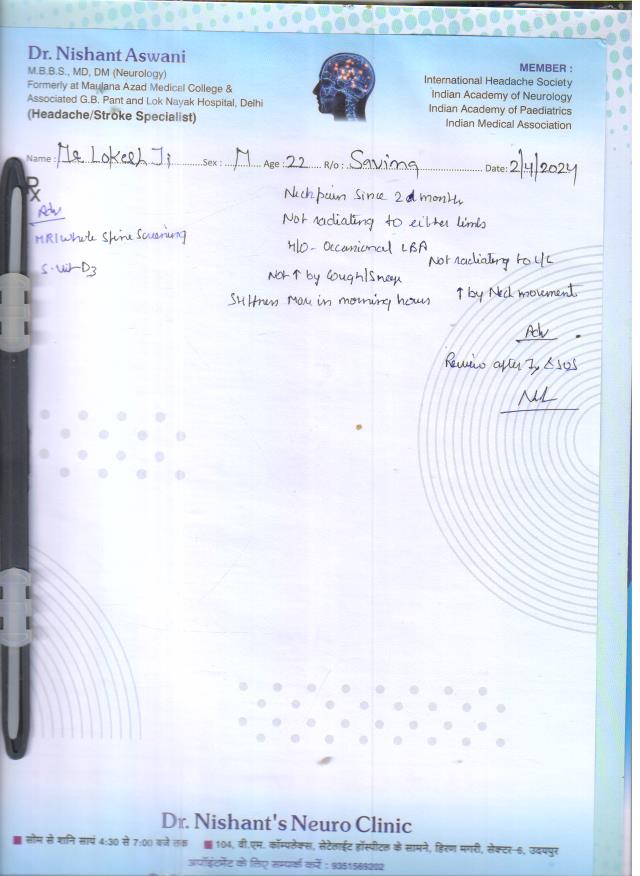 Dr. Nishant Aswani
M.B.B.S., MD, DM (Neurology)
Formerly at Maulana Azad Medical College &
Associated G.B. Pant and Lok Nayak Hospital, Delhi
(Headache/Stroke Specialist)
MEMBER :
International Headache Society
Indian Academy of Neurology
Indian Academy of Paediatrics
Indian Medical Association
Name : Mr Lokesh Ji Sex : M Age : 22 R/o : Saving Date: 2/4/2024
Rx
Adv
MRI whole Spine Screening
S. vit-D3
Neck pain Since 2 month
Not radiating to either limbs
H/O - Occasional LBA
Not radiating to L/L
Not ↑ by Cough/Sneeze
Stiffness More in morning hours ↑ by Neck movement
Adv
Review after & SOS
Dr. Nishant's Neuro Clinic
सोम से शनि सायं 4:30 से 7:00 बजे तक 104, वी.एम. कॉम्पलेक्स, सेटेलाईट हॉस्पीटल के सामने, हिरण मगरी, सेक्टर-6, उदयपुर
अपॉइंटमेंट के लिए सम्पर्क करें : 9351569202